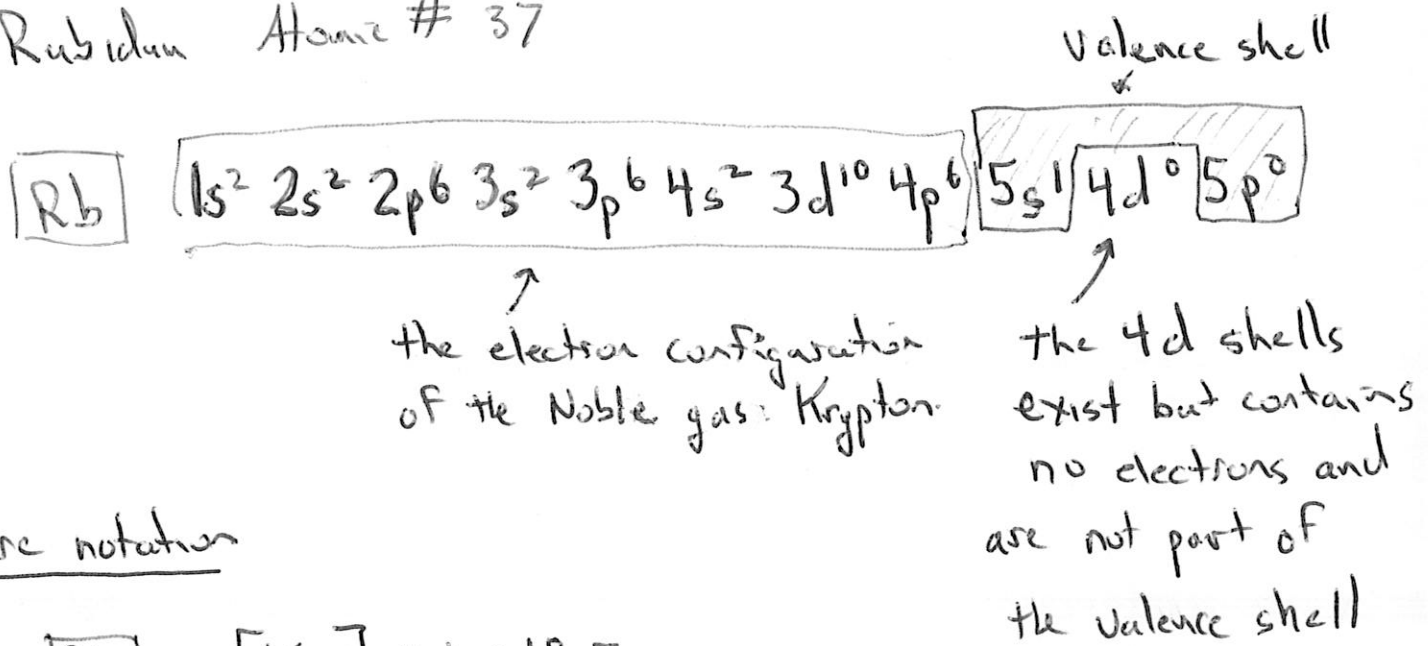 Rubidum Atomic # 37
Valence shell
Rb 1s² 2s² 2p⁶ 3s² 3p⁶ 4s² 3d¹⁰ 4p⁶ 5s¹ 4d⁰ 5p⁰
the electron configuration
of the Noble gas: Krypton.
the 4d shells
exist but contains
no electrons and
are not part of
the valence shell
re notation